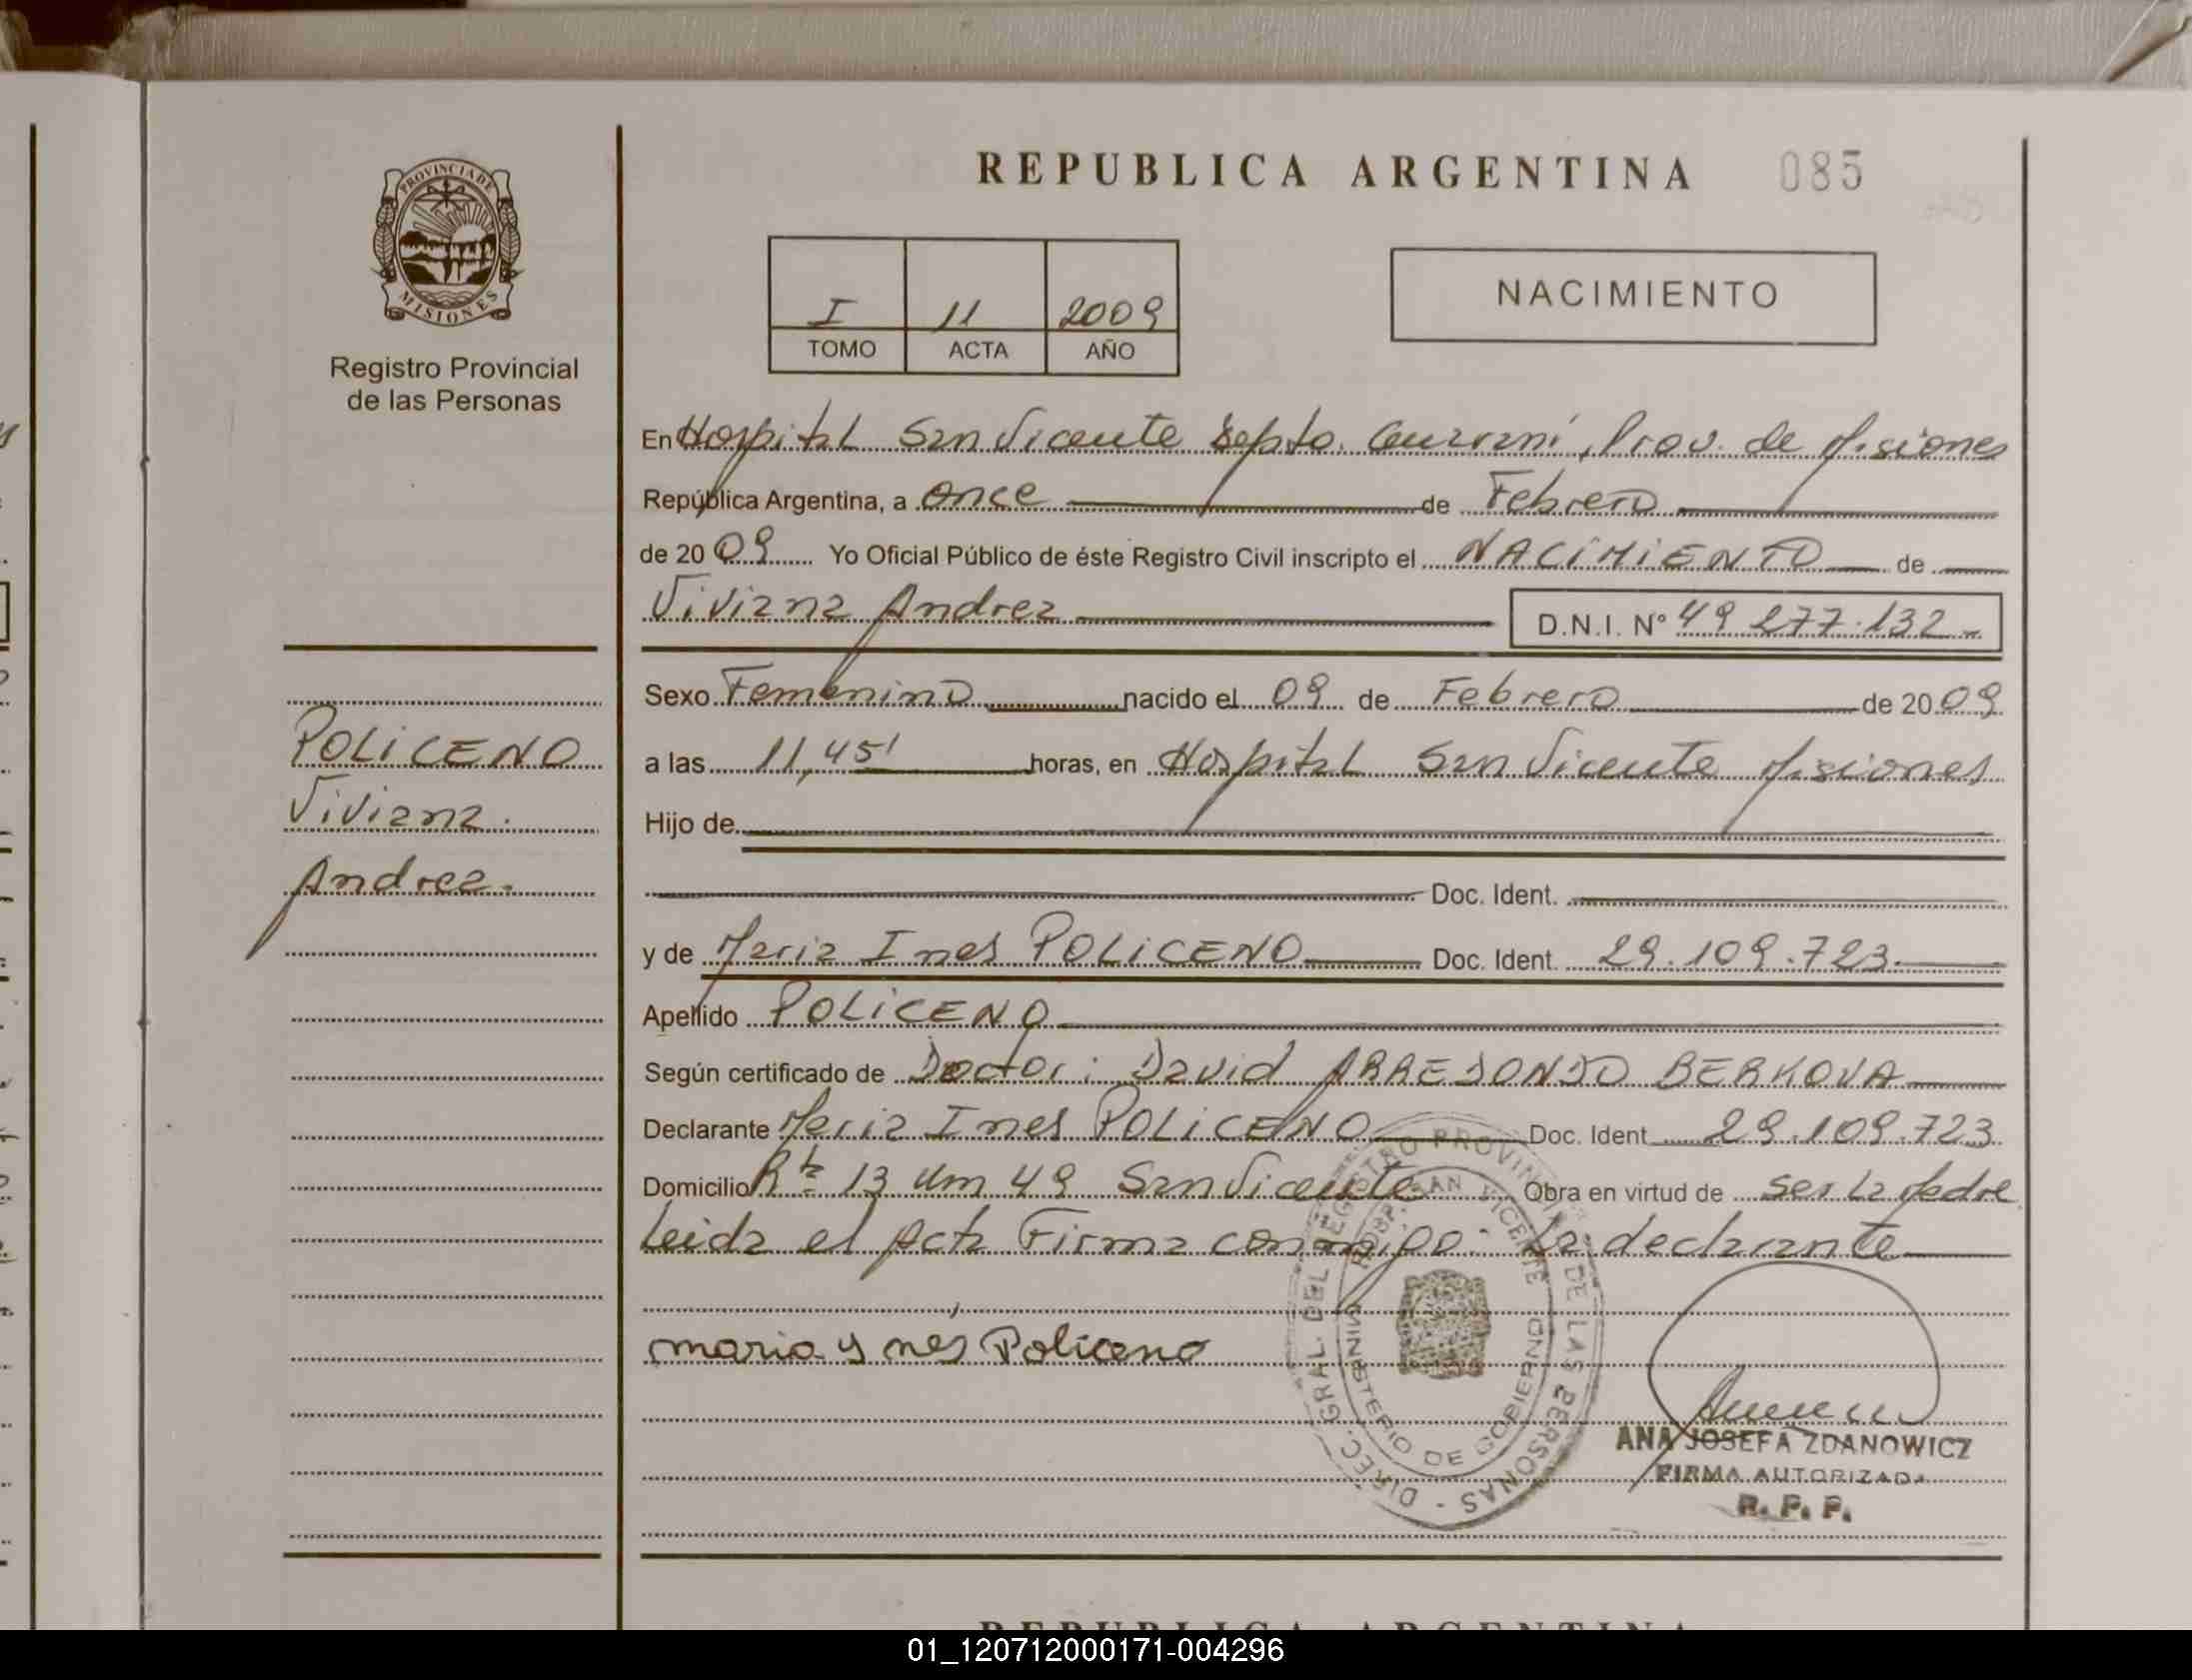 REPUBLICA ARGENTINA 085
PROVINCIA DE
MISIONES
Registro Provincial
de las Personas
I 11 2009
TOMO ACTA AÑO
NACIMIENTO
En Hospital San Vicente Depto. Guarani, Prov. de Misiones
República Argentina, a once de Febrero
de 2009 Yo Oficial Público de éste Registro Civil inscripto el NACIMIENTO de
Viviana Andrea D.N.I. Nº 49 277.132
Sexo Femenino nacido el 09 de Febrero de 2009
a las 11,45' horas, en Hospital San Vicente Misiones
Hijo de
Doc. Ident.
y de Maria Ines POLICENO Doc. Ident. 29.109.723
Apellido POLICENO
Según certificado de Doctor: David ARREDONDO BERKOVA
Declarante Maria Ines POLICENO Doc. Ident 29.109.723
Domicilio Rta 13 Km 49 San Vicente Obra en virtud de ser la Madre
Leida el Acta Firma conmigo: La declarante
maria ynes Policeno
POLICENO
Viviana
Andrea.
DIREC. GRAL. DEL REGISTRO PROVINCIAL DE LAS PERSONAS
HOSP. SAN VICENTE
MINISTERIO DE GOBIERNO
ANA JOSEFA ZDANOWICZ
FIRMA AUTORIZADA
R. P. P.
REPUBLICA ARGENTINA
01_120712000171-004296